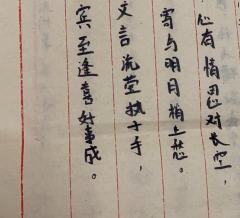 心有情思对长空，
寄与明月梢上。
文言流萤执子手，
宾至逢喜好事成。